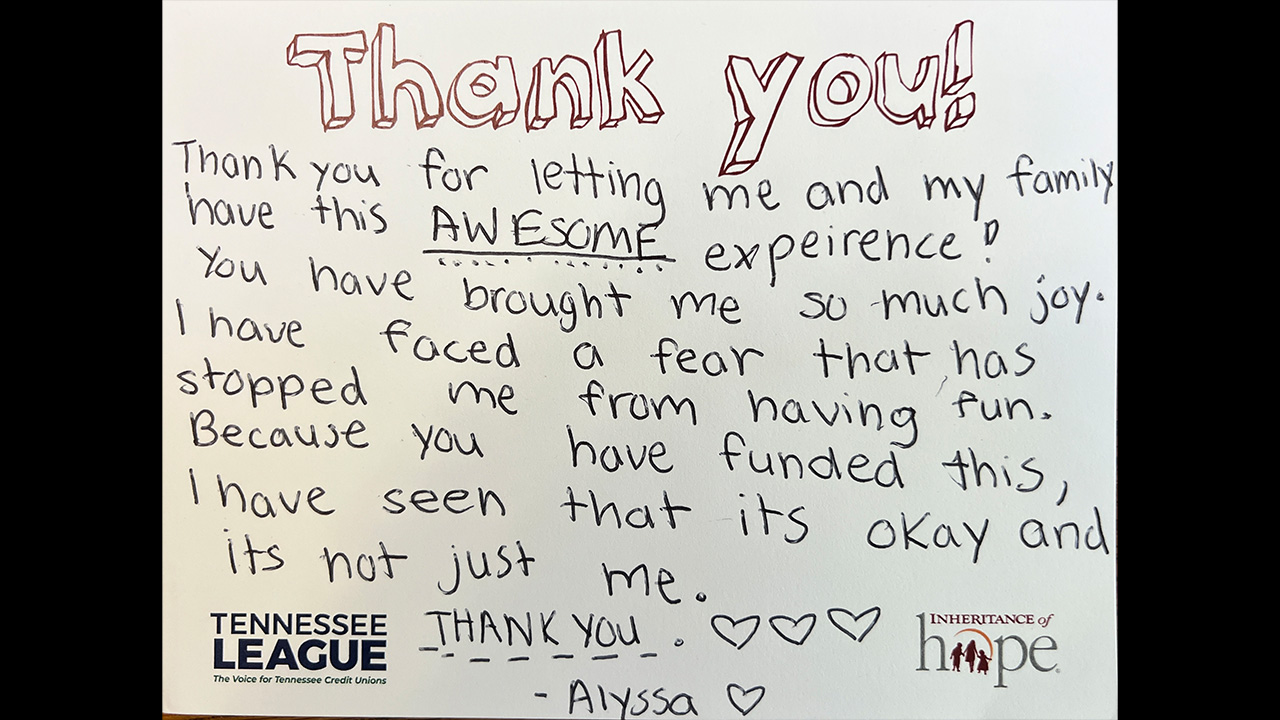 Thank you!
Thank you for letting me and my family
have this AWESOME expeirence!
You have brought me so much joy.
I have faced a fear that has
stopped me from having fun.
Because you have funded this,
I have seen that its okay and
its not just me.
THANK YOU. ♡♡♡
- Alyssa ♡
TENNESSEE
LEAGUE
The Voice for Tennessee Credit Unions
INHERITANCE of
hope